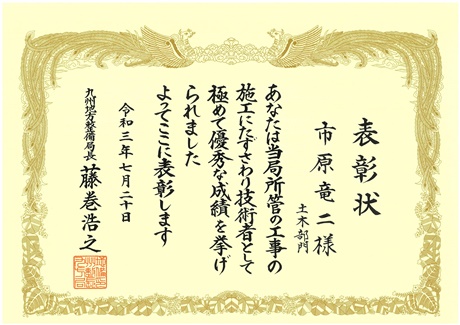 表彰状
市原竜二様
土木部門
あなたは当局所管の工事の
施工にたずさわり技術者として
極めて優秀な成績を挙げ
られました
よってここに表彰します
令和三年七月二十日
九州地方整備局長
藤巻浩之